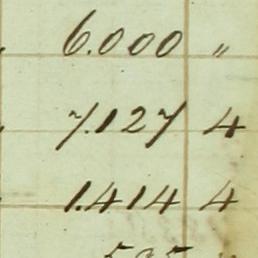 6.000 "
7.127 4
1.414 4